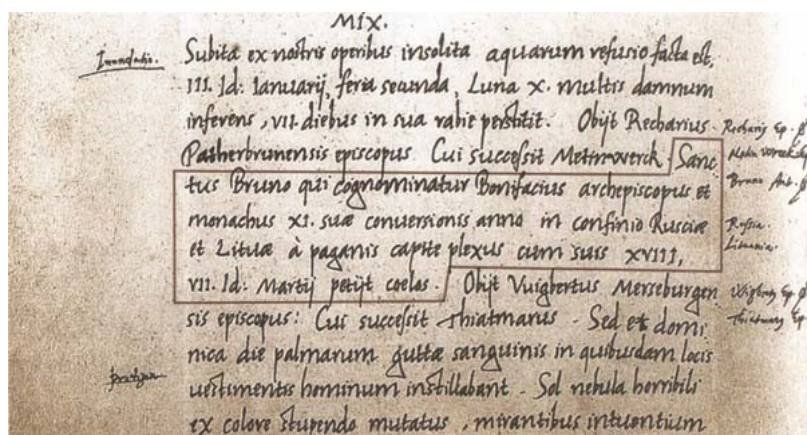 MIX.
Inundatio.
Subita ex nostris operibus insolita aquarum refusio facta est,
III. Id: Ianuarij, feria secunda, Luna X. multis damnum
inferens, VII. diebus in sua rabie perstitit. Obijt Recharius
Patherbrunensis episcopus Cui successit Meinwerck. Sanc
tus Bruno qui cognominatur Bonifacius archepiscopus et
monachus XI. suæ conversionis anno in confinio Rusciæ
et Lituæ à paganis capite plexus cum suis XVIII,
VII. Id: Martij petijt coelos. Obijt Vuigbertus Merseburgen
sis episcopus: Cui successit Thiatmarus. Sed et domi
nica die palmarum guttæ sanguinis in quibusdam locis
uestimentis hominum instillabant. Sol nebula horribili
ex colore stupendo mutatus, mirantibus intuentium
Recharij Ep.
Bruno
Russia.
Lituania.
Wigbertus Ep.
Thiatmarus Ep.